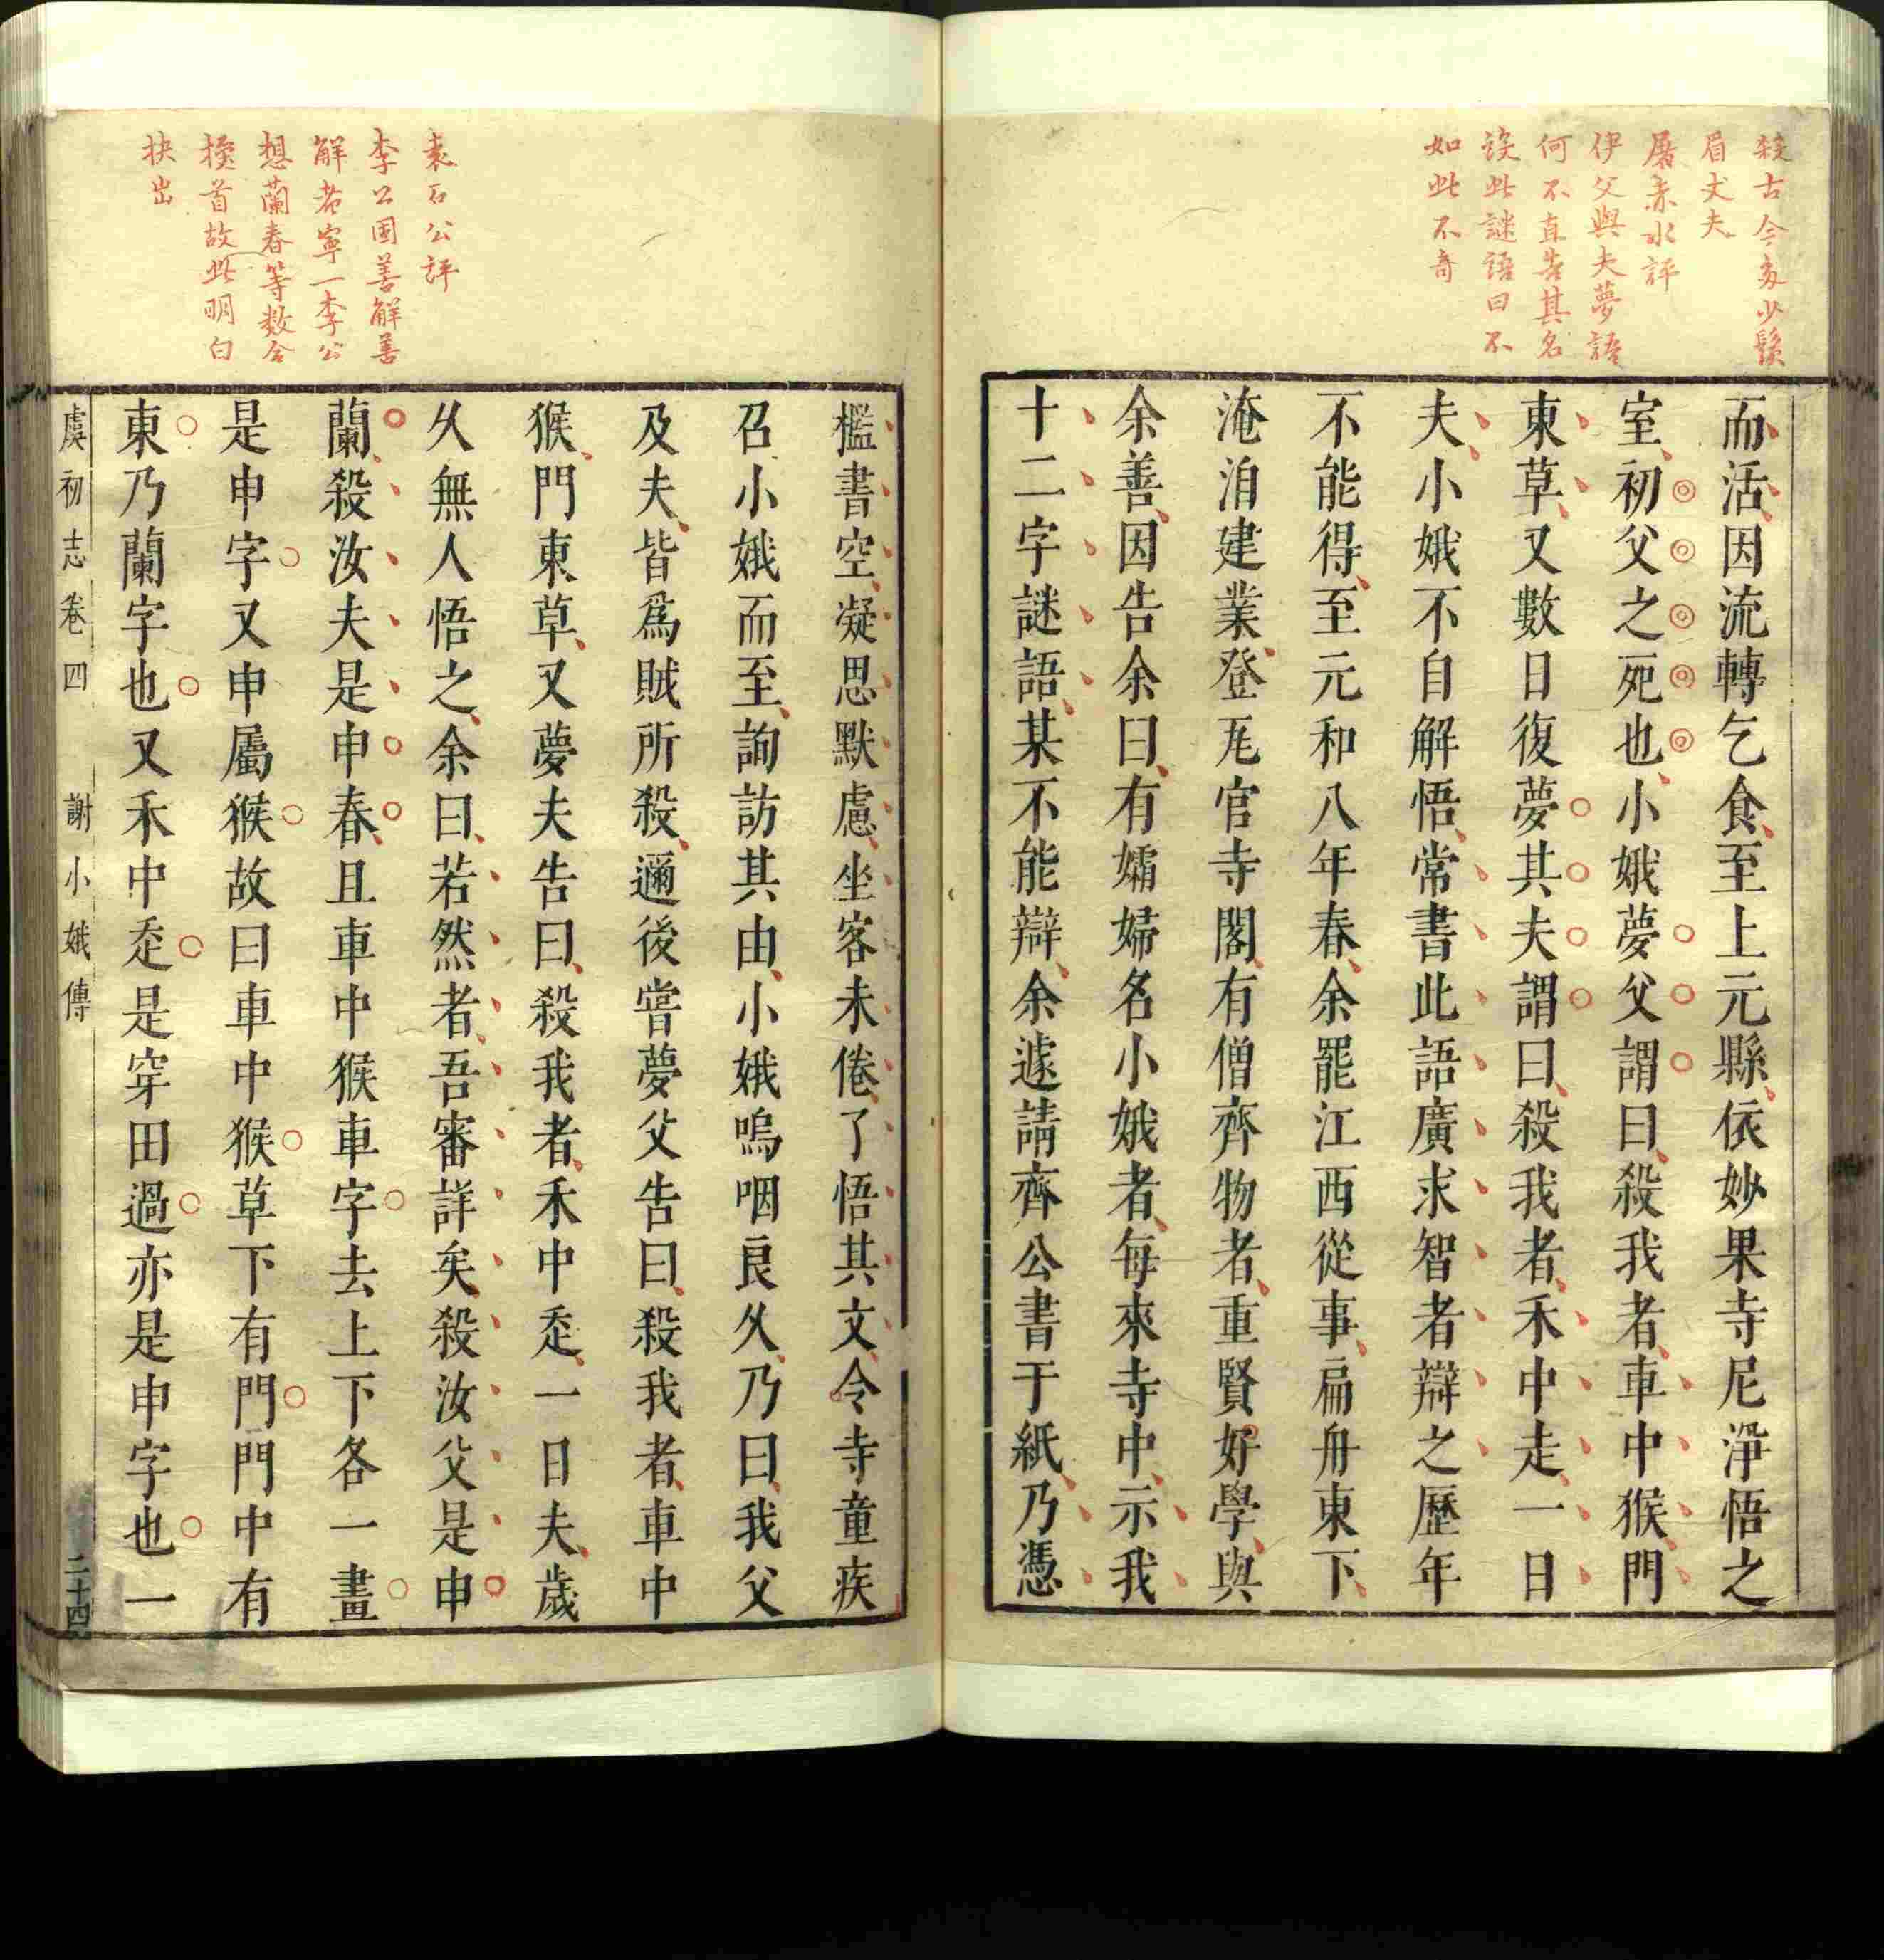 殺古今多少鬚
眉丈夫
屠赤水評
伊父與夫夢語
何不直告其名
誤此謎語曰不
如此不奇
而活因流轉乞食至上元縣依妙果寺尼淨悟之
室初父之死也小娥夢父謂曰殺我者車中猴門
東草又數日復夢其夫謂曰殺我者禾中走一日
夫小娥不自解悟常書此語廣求智者辯之歷年
不能得至元和八年春余罷江西從事扁舟東下
淹泊建業登瓦官寺閣有僧齊物者重賢好學與
余善因告余曰有孀婦名小娥者每來寺中示我
十二字謎語某不能辯余遽請齊公書于紙乃憑
袁石公評
李公固善解善
解者寧一李公
想蘭春等數合
擡首故此明白
抉出
檻書空凝思默慮坐客未倦了悟其文令寺童疾
召小娥而至詢訪其由小娥嗚咽良久乃曰我父
及夫皆爲賊所殺邇後嘗夢父告曰殺我者車中
猴門東草又夢夫告曰殺我者禾中赱一日夫歲
久無人悟之余曰若然者吾審詳矣殺汝父是申
蘭殺汝夫是申春且車中猴車字去上下各一畫
是申字又申屬猴故曰車中猴草下有門門中有
東乃蘭字也又禾中赱是穿田過亦是申字也一
虞初志卷四 謝小娥傳 二十四